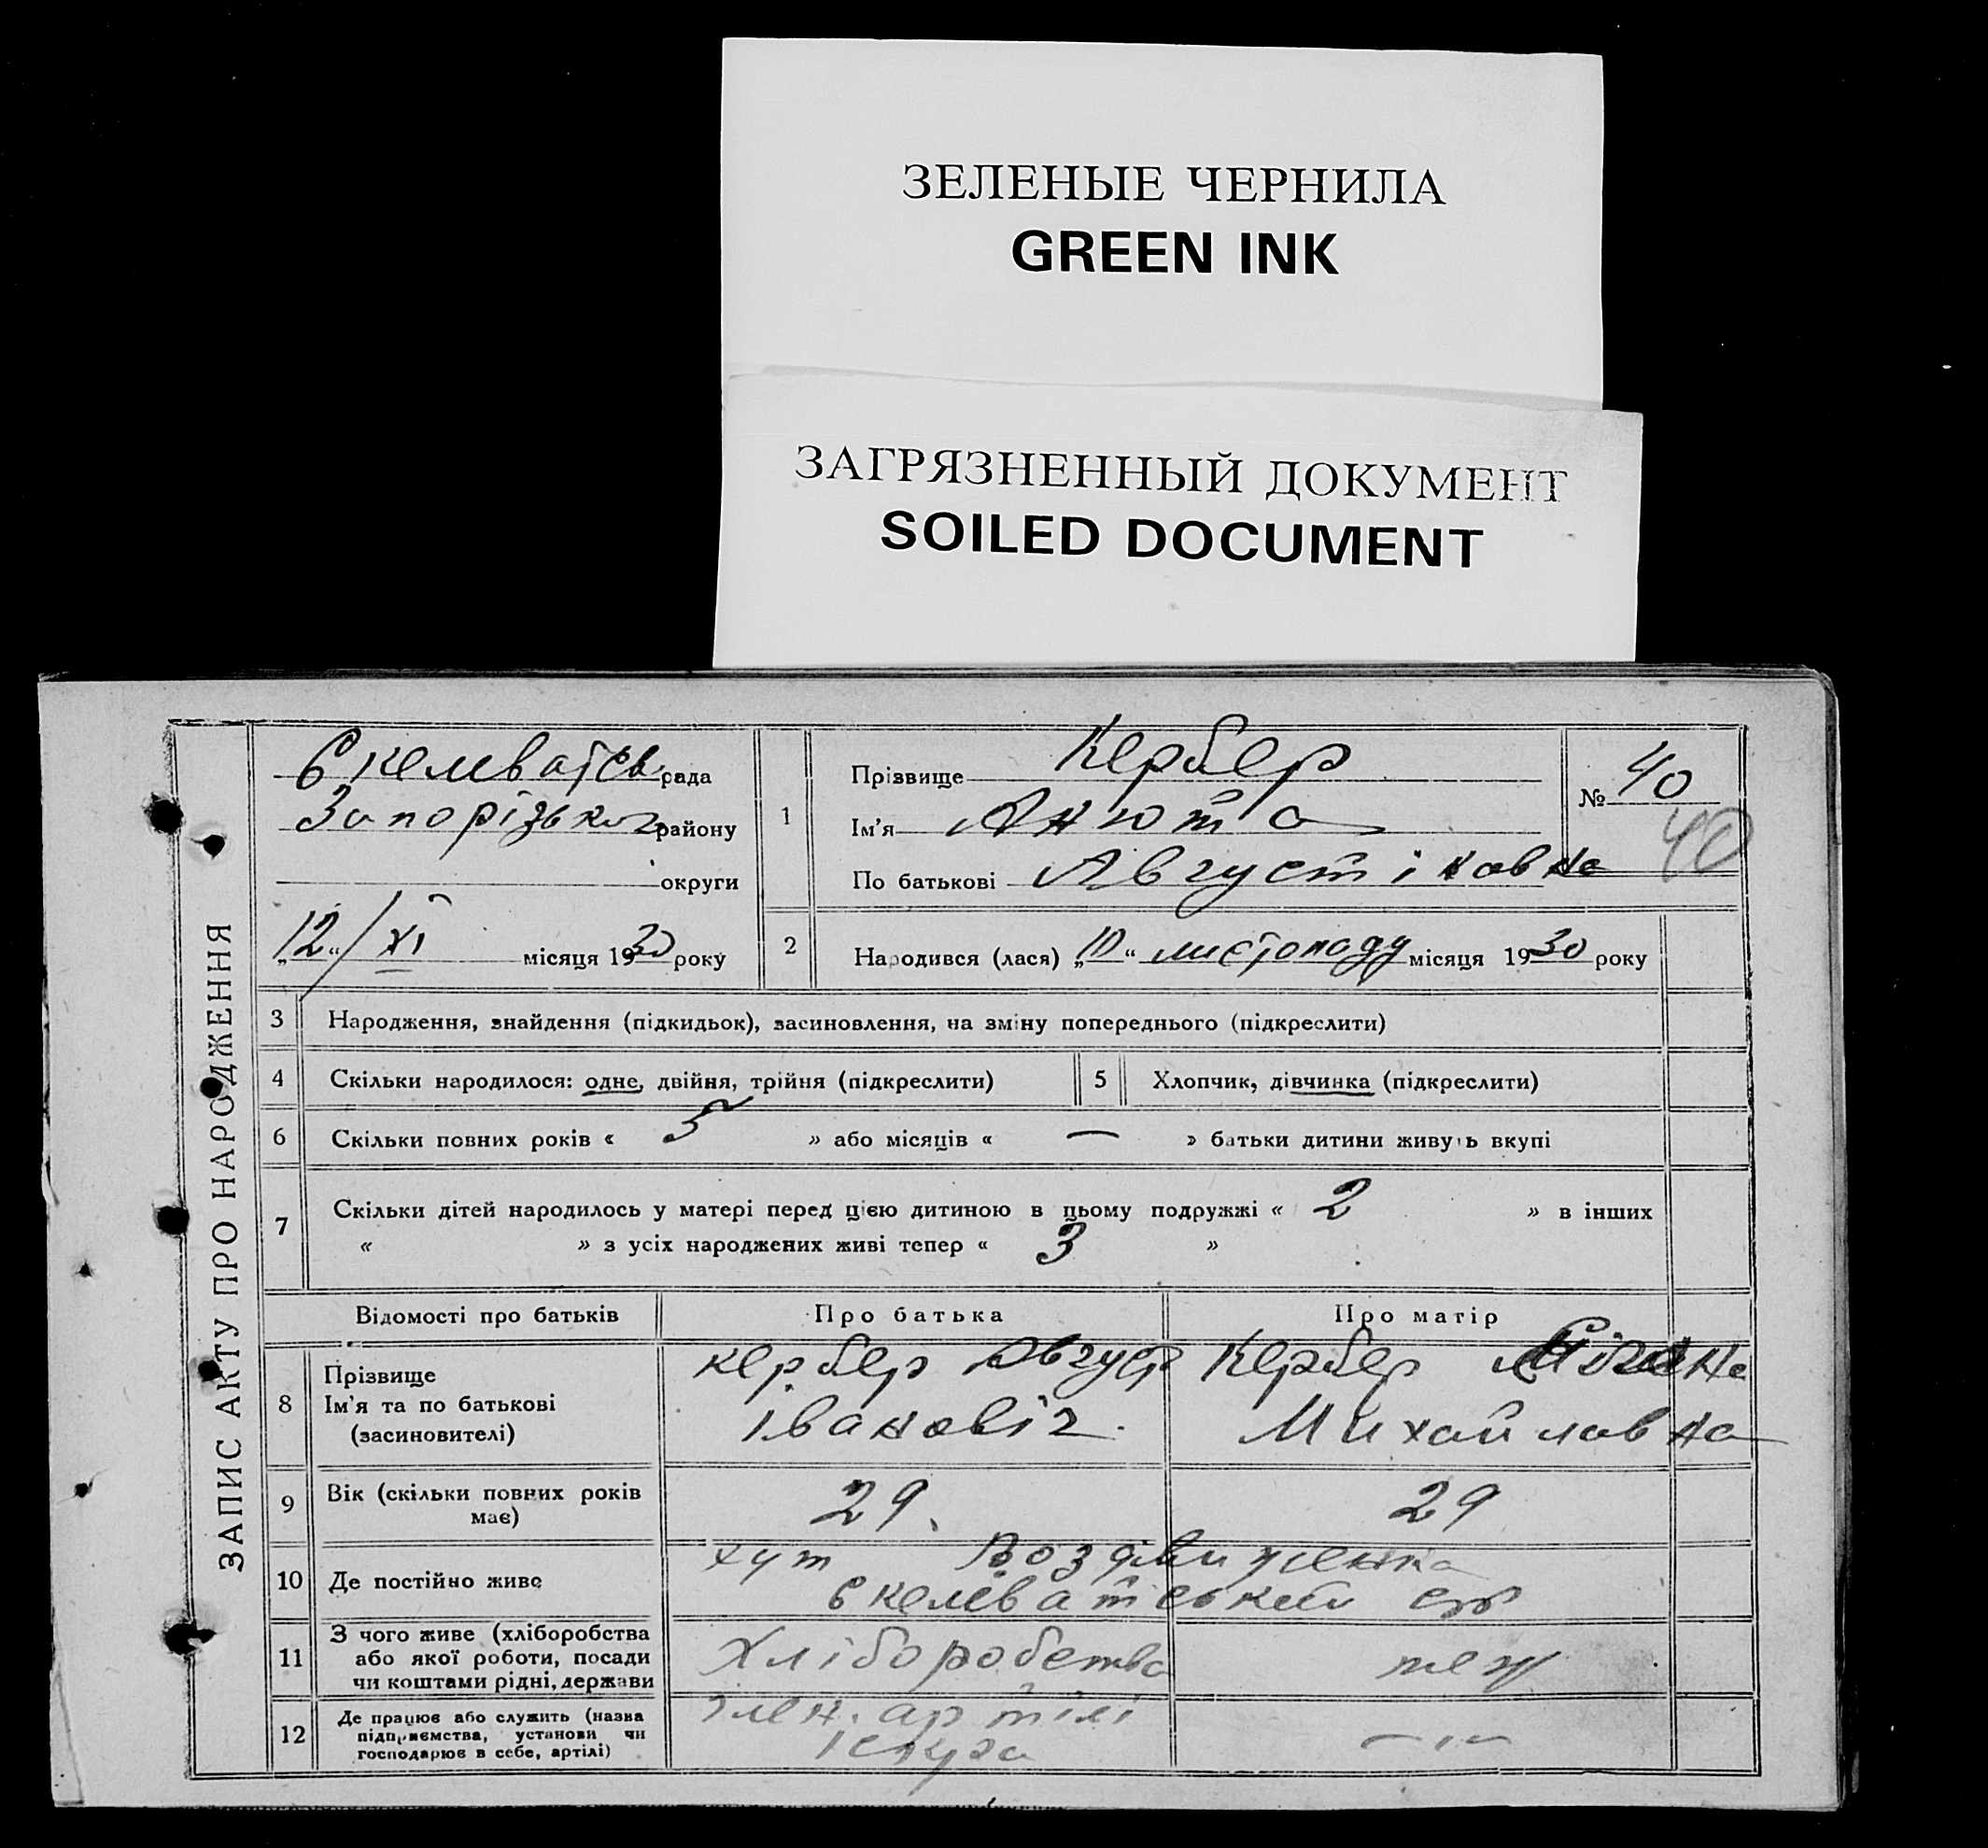 ЗЕЛЕНЫЕ ЧЕРНИЛА
GREEN INK
ЗАГРЯЗНЕННЫЙ ДОКУМЕНТ
SOILED DOCUMENT
ЗАПИС АКТУ ПРО НАРОДЖЕННЯ
Скелеватськ рада
Запорізьког району
округи
„12“/XI місяця 1930 року
1
Прізвище Кербер
Ім'я Анюта
По батькові Августіновна
№ 40
40
2 Народився (лася) „10“ листопаду місяця 1930 року
3 Народження, знайдення (підкидьок), засиновлення, на зміну попереднього (підкреслити)
4 Скільки народилося: одне, двійня, трійня (підкреслити)
5 Хлопчик, дівчинка (підкреслити)
6 Скільки повних років « 5 » або місяців « — » батьки дитини живуть вкупі
7 Скільки дітей народилось у матері перед цією дитиною в цьому подружжі « 2 » в інших
« » з усіх народжених живі тепер « 3 »
Відомості про батьків Про батька Про матір
8 Прізвище
Ім'я та по батькові
(засиновителі)
Кербер Август
Івановіч.
Кербер
Михайловна
9 Вік (скільки повних років
має)
29. 29
10 Де постійно живе
хут Воздвиженка
Скелеватський с/р
11 З чого живе (хліборобства
або якої роботи, посади
чи коштами рідні, держави
Хліборобства теж
12 Де працює або служить (назва
підприємства, установи чи
господарює в себе, артілі)
член. артілі
Іскра
—"—